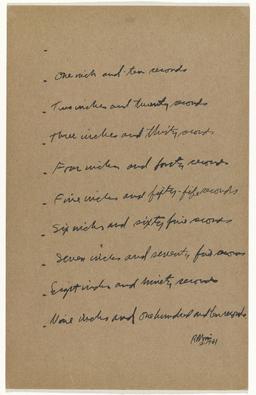 -
- One inch and ten seconds
- Two inches and twenty seconds
- Three inches and thirty seconds
- Four inches and forty seconds
- Five inches and fifty-five seconds
- Six inches and sixty five seconds
- Seven inches and seventy five seconds
- Eight inches and ninety seconds
- Nine inches and one hundred and ten seconds